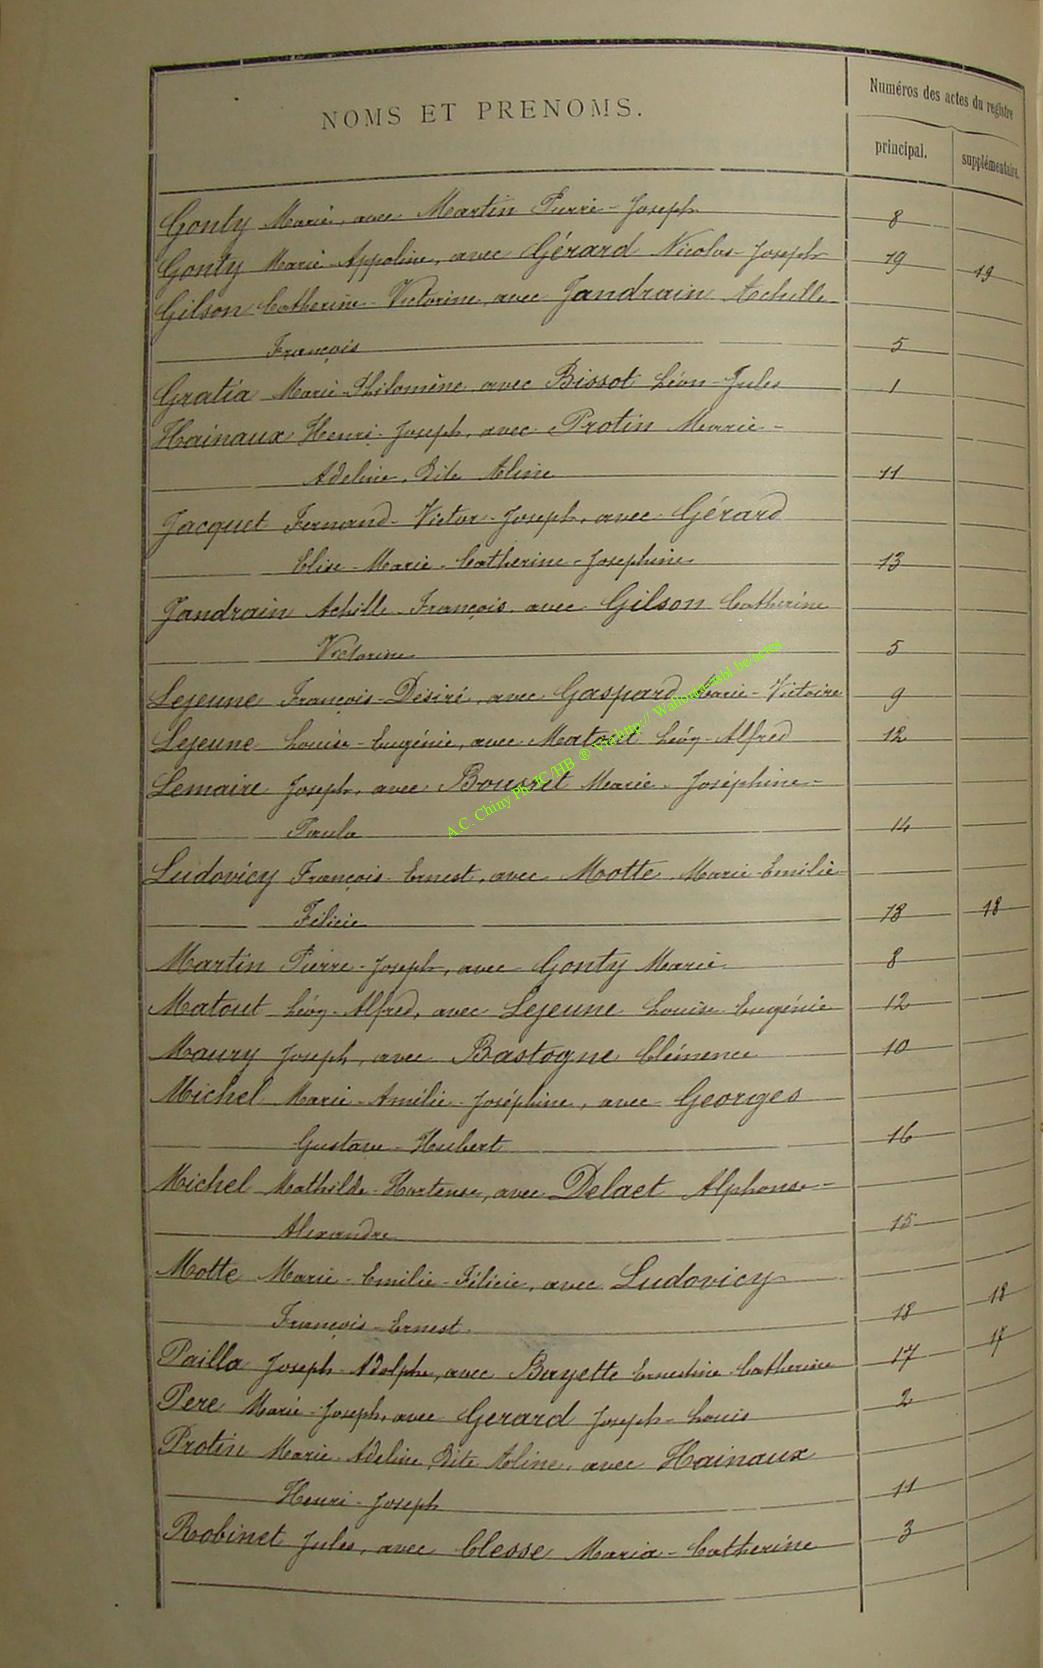 Numéros des actes du registre
NOMS ET PRENOMS.
principal. supplémentaire.
Gonty Marie, avec Martin Pierre-Joseph 8
Gonty Marie-Appoline, avec Gérard Nicolas-Joseph 19 19
Gilson Catherine-Victorine, avec Jandrain Achille
François 5
Gratia Marie-Philomène avec Bissot Léon-Jules 1
Hainaux Henri-Joseph, avec Protin Marie-
Adeline, Dite Aline 11
Jacquet Fernand-Victor-Joseph, avec Gérard
Elise-Marie-Catherine-Josephine 13
Jandrain Achille-François avec Gilson Catherine
Victorine 5
Lejeune François-Désiré, avec Gaspard Marie-Victoire 9
Lejeune Louise-Eugénie, avec Matout Léon-Alfred 12
Lemaire Joseph, avec Bousset Marie-Joséphine-
Paula 14
Ludovicy François-Ernest, avec Motte Marie-Emilie
Félicie 18 18
Martin Pierre-Joseph, avec Gonty Marie 8
Matout Léon-Alfred, avec Lejeune Louise Eugénie 12
Maury Joseph, avec Bastogne Clémence 10
Michel Marie-Amélie-Joséphine, avec Georges
Gustave-Hubert 16
Michel Mathilde-Hortense, avec Delaet Alphonse-
Alexandre 15
Motte Marie-Emilie-Félicie, avec Ludovicy
François-Ernest 18 18
Pailla Joseph-Adolphe, avec Bayette Ernestine-Catherine 17 17
Pere Marie-Joseph, avec Gerard Joseph-Louis 2
Protin Marie-Adeline, Dite Aline, avec Hainaux
Henri-Joseph 11
Robinet Jules, avec Clesse Maria-Catherine 3
A.C. Chiny Ph. JC/HB ® Via http:// Wallonia-asbl.be/actes